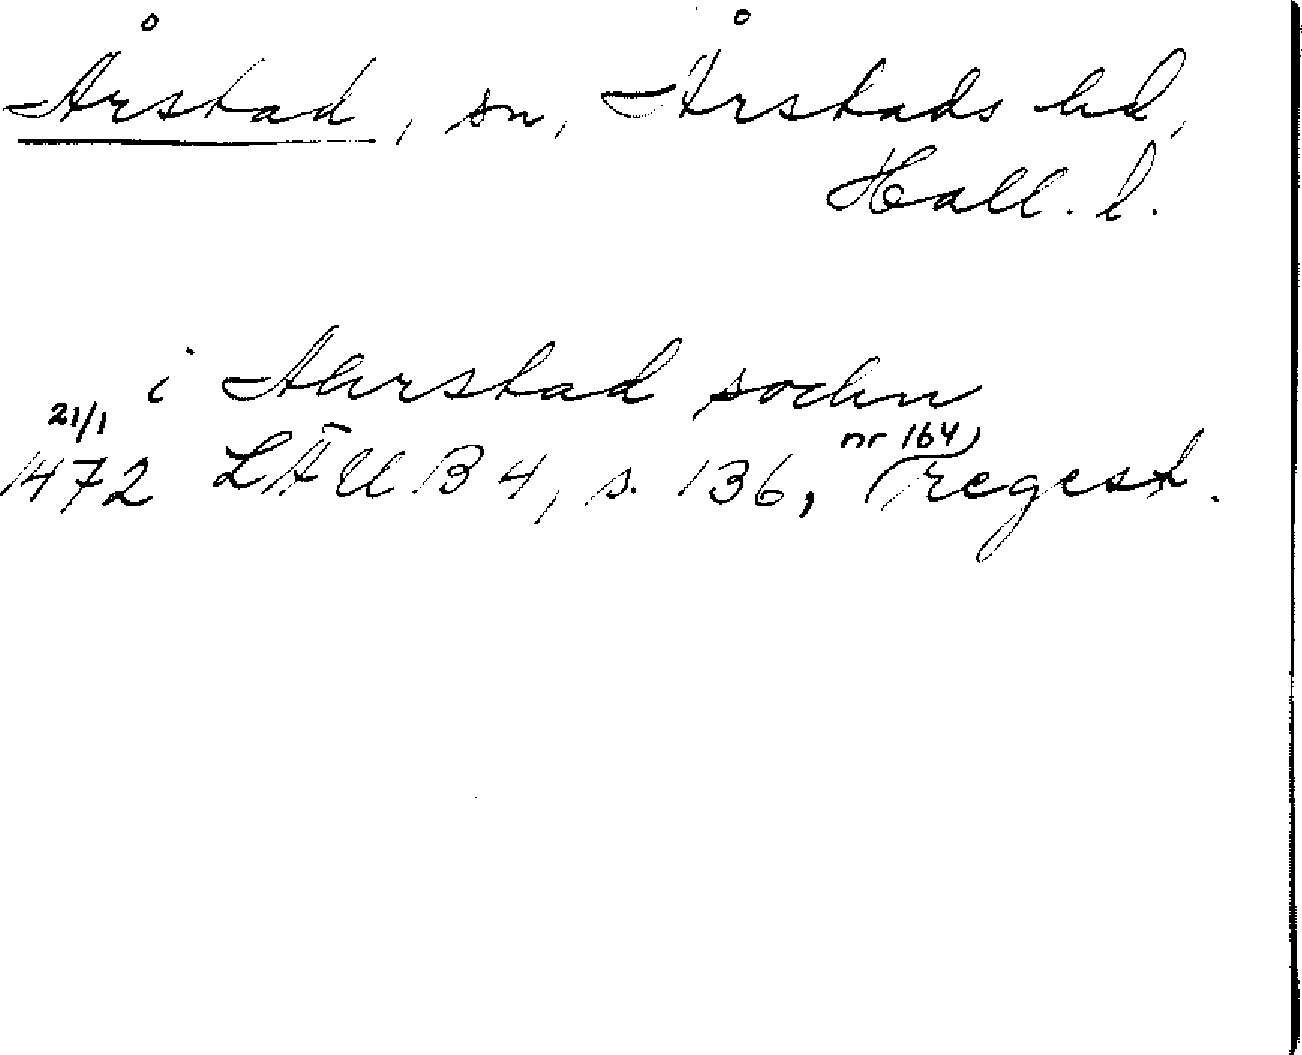 Årstad, sn, Årstads hd,
Hall. l.
i Aarstad sochn
21/1 nr 164
1472 LÄUB 4, s. 136, regest.